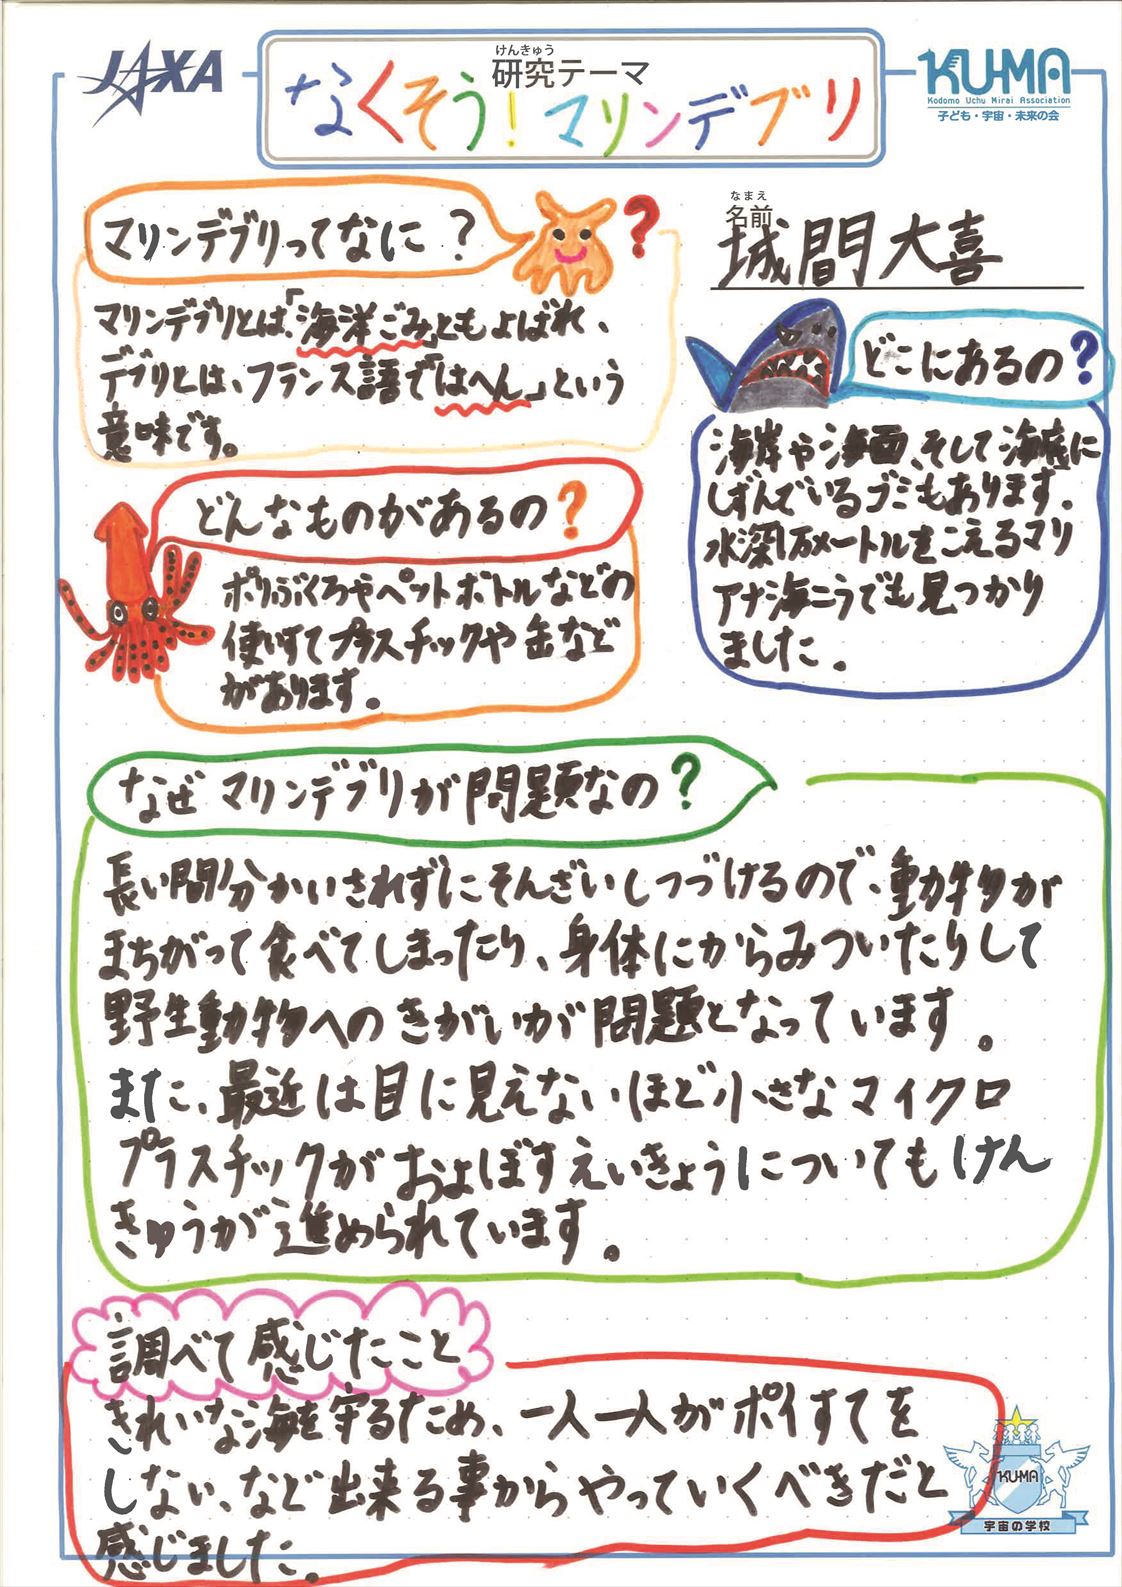 JAXA
けんきゅう
研究テーマ
なくそう！マリンデブリ
KUMA
Kodomo Uchu Mirai Association
子ども・宇宙・未来の会
なまえ
名前
城間大喜
マリンデブリってなに？
？
マリンデブリとは、「海洋ごみ」ともよばれ、
デブリとは、フランス語で「はへん」という
意味です。
どこにあるの？
海岸や海面、そして海底に
しずんでいるゴミもあります。
水深1万メートルをこえるマリ
アナ海こうでも見つかり
ました。
どんなものがあるの？
ポリぶくろやペットボトルなどの
使いすてプラスチックや缶など
があります。
なぜマリンデブリが問題なの？
長い間分かいされずにそんざいしつづけるので、動物が
まちがって食べてしまったり、身体にからみついたりして
野生動物へのきがいが問題となっています。
また、最近は目に見えないほど小さなマイクロ
プラスチックがおよぼすえいきょうについてもけん
きゅうが進められています。
調べて感じたこと
きれいな海を守るため、一人一人がポイすてを
しない、など出来る事からやっていくべきだと
感じました。
KUMA
宇宙の学校